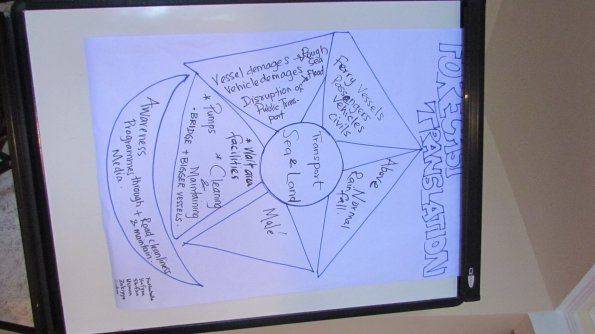 FORECAST
TRANSLATION
Above
Normal
Rain fall
Ferry Vessels
Passengers
Vehicles
Civils
Vessel damages → Rough Sea
Vehicle damages → Flood
Disruption of
Public Trans-
port
Transport
Sea & Land
Male'
* Wait area
facilities
* Pumps * Cleaning
& Maintaining
- BRIDGE + BIGGER VESSELS.
Awareness
Programmes through
Media.
+ Road cleanliness
& maintain